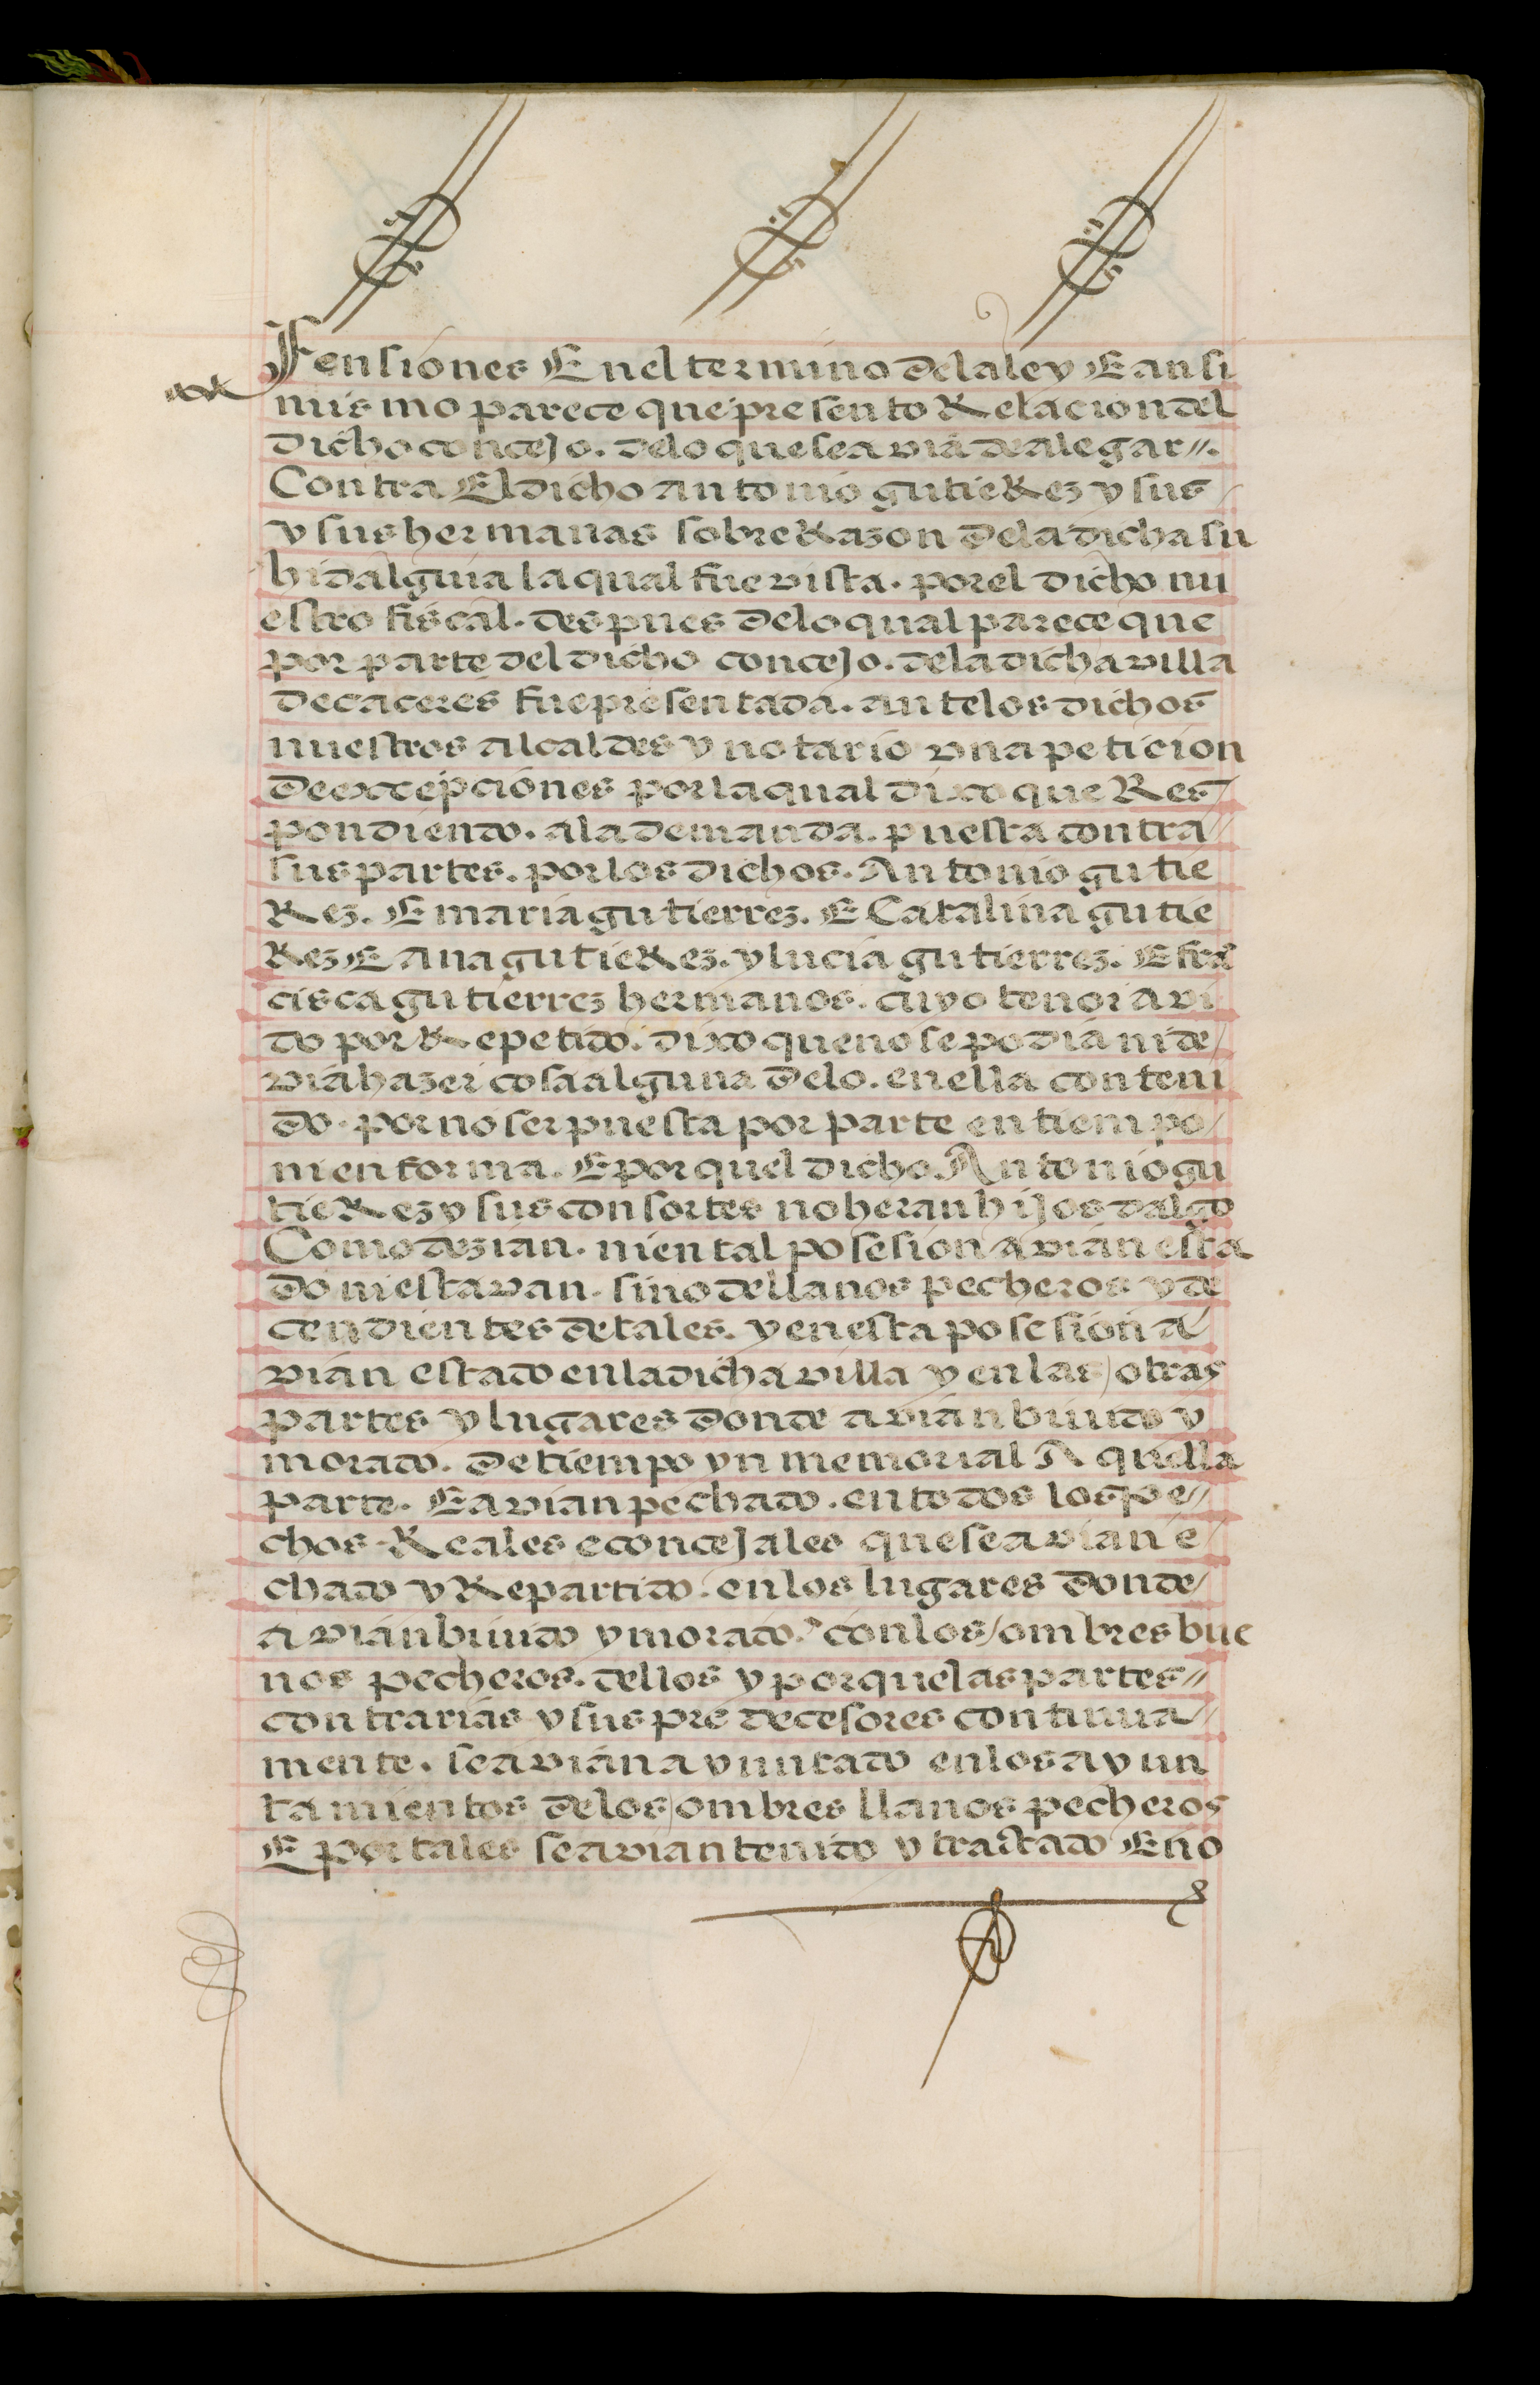 Fensiones E nel termino de la ley E ansi
mismo parece que presento Relacion del
dicho concejo. de lo que se avia de alegar //.
Contra El dicho antonio gutieRez y sus
y sus hermanas sobre Razon de la dicha su
hidalguia la qual fue vista. por el dicho nu
estro fiscal. despues de lo qual parece que
por parte del dicho concejo. de la dicha villa
de caceres fue presentada. ante los dichos
nuestros alcaldes y notario vna peticion
de excepciones por la qual dixo que Res
pondiendo. a la demanda. puesta contra
sus partes. por los dichos. Antonio gutie
Rez. E maria gutierrez. E Catalina gutie
Rez E Ana gutieRez. y lucia gutierrez. E frã
cisca gutierrez hermanos. cuyo tenor avi
do por Repetido. dixo que no se podia ni de
via hazer cosa alguna de lo. en ella conteni
do. por no ser puesta por parte en tiempo
ni en forma. E por quel dicho Antonio gu
tieRez y sus consortes no heran hijos dalgo
Como dezian. ni en tal posesion avian esta
do ni estavan. sino de llanos pecheros y de
cendientes de tales. y en esta posesion a
vian estado en la dicha villa y en las otras
partes y lugares donde avian biuido y
morado. de tiempo yn memorial A quella
parte. E avian pechado. en todos los pe//
chos Reales e concejales que se avian e
chado y Repartido. en los lugares donde
avian biuido y morado. con los ombres bue
nos pecheros. dellos y porque las partes //
contrarias y sus predecesores continua //
mente. se avian ayuntado en los ayun
tamientos de los ombres llanos pecheros
E por tales se avian tenido y tractado E no